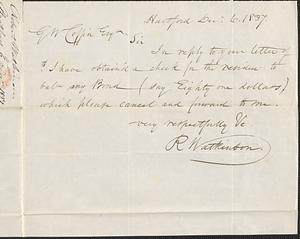 Hartford Dec. 6. 1837
G W Coffin Esqr
Sir
In reply to your letter of
I have obtained a check for the residue to
bal: my Bond (say Eighty one dollars)
which please cancel and forward to me.
very respectfully &c
R Watkinson